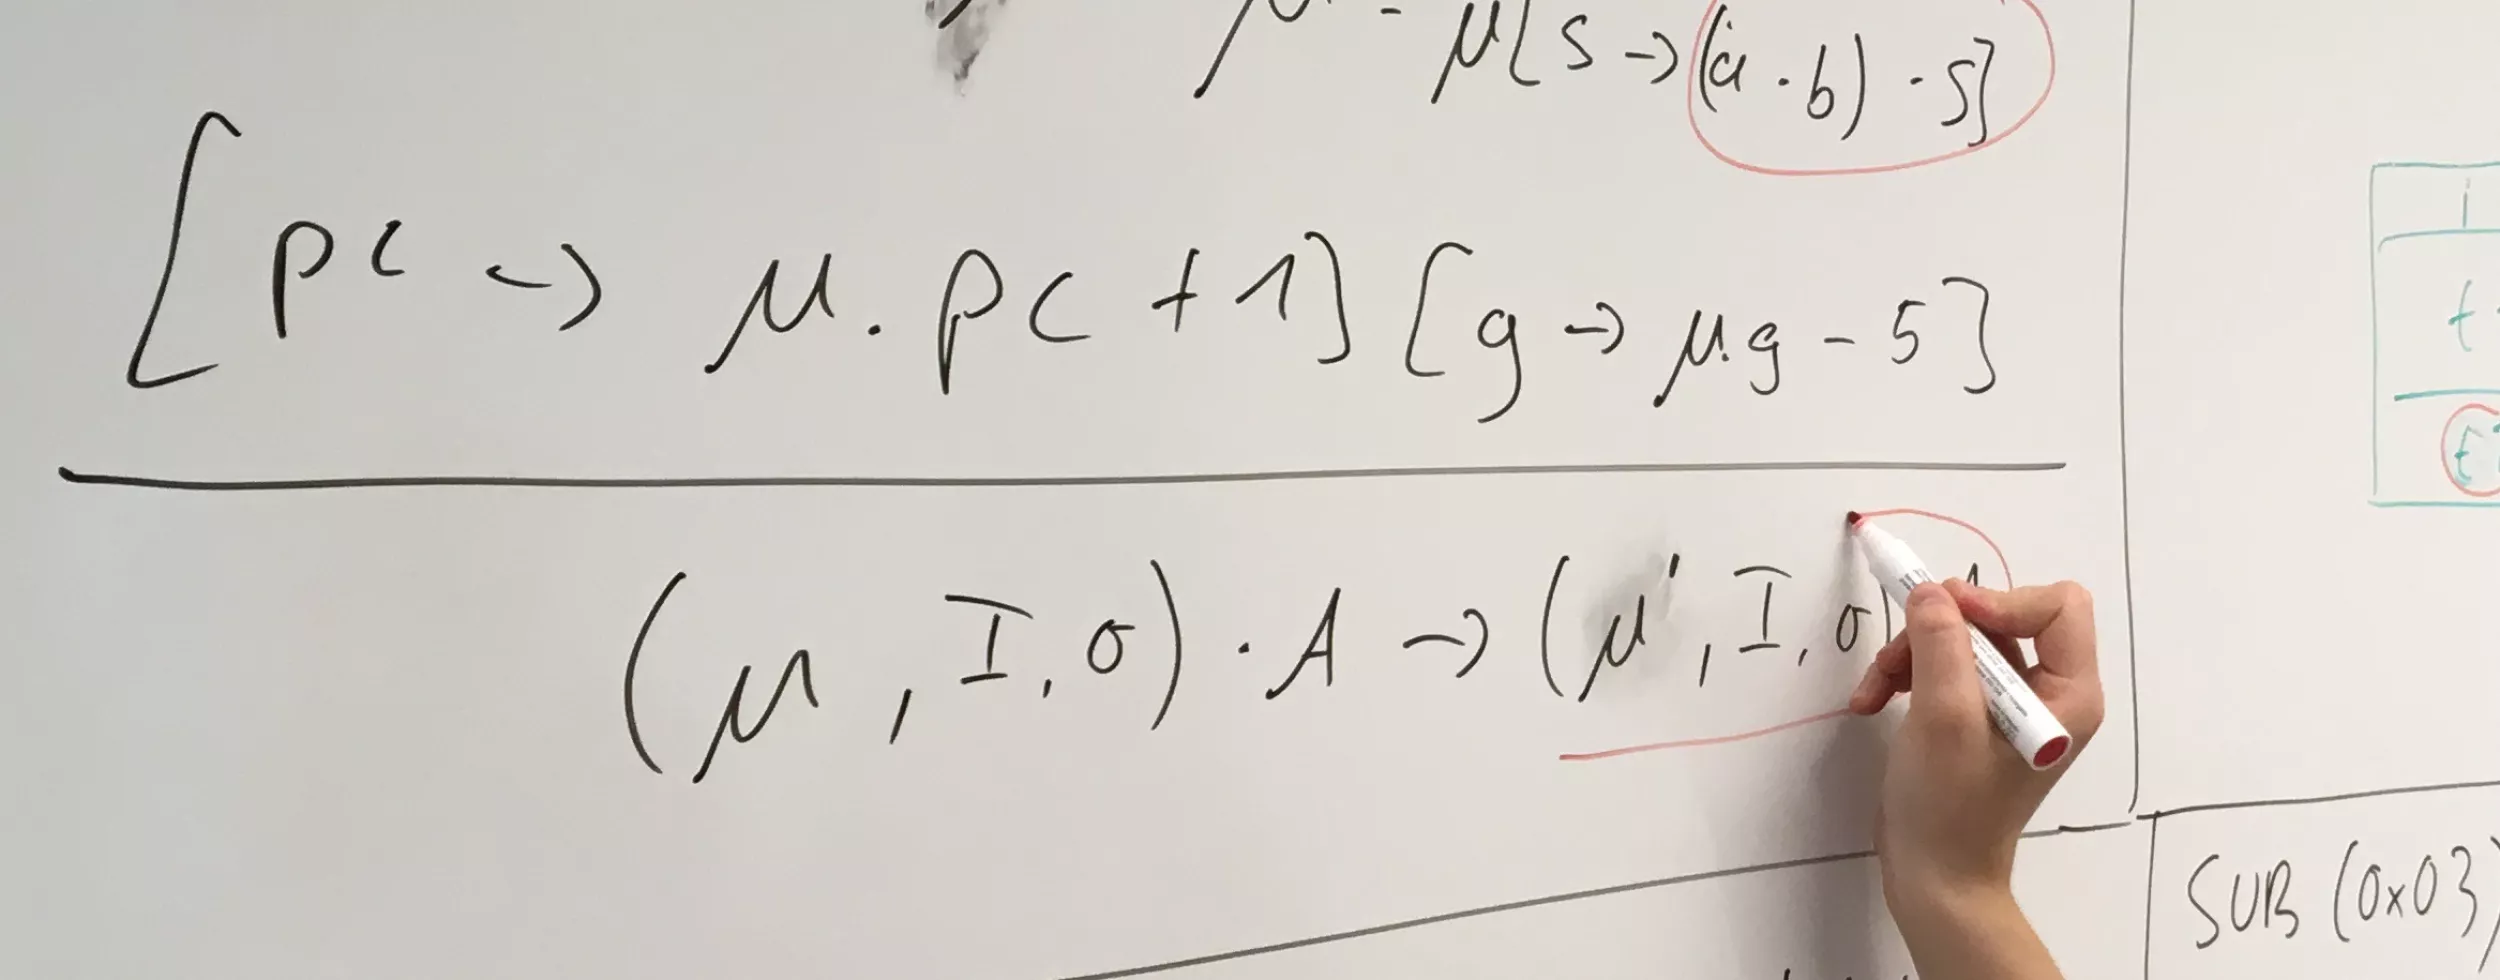 μ[s → (a · b) · s]
[pc → μ.pc + 1] [g → μ.g - 5]
(μ, I, σ) · A → (μ', I, σ)
SUB (0x03)